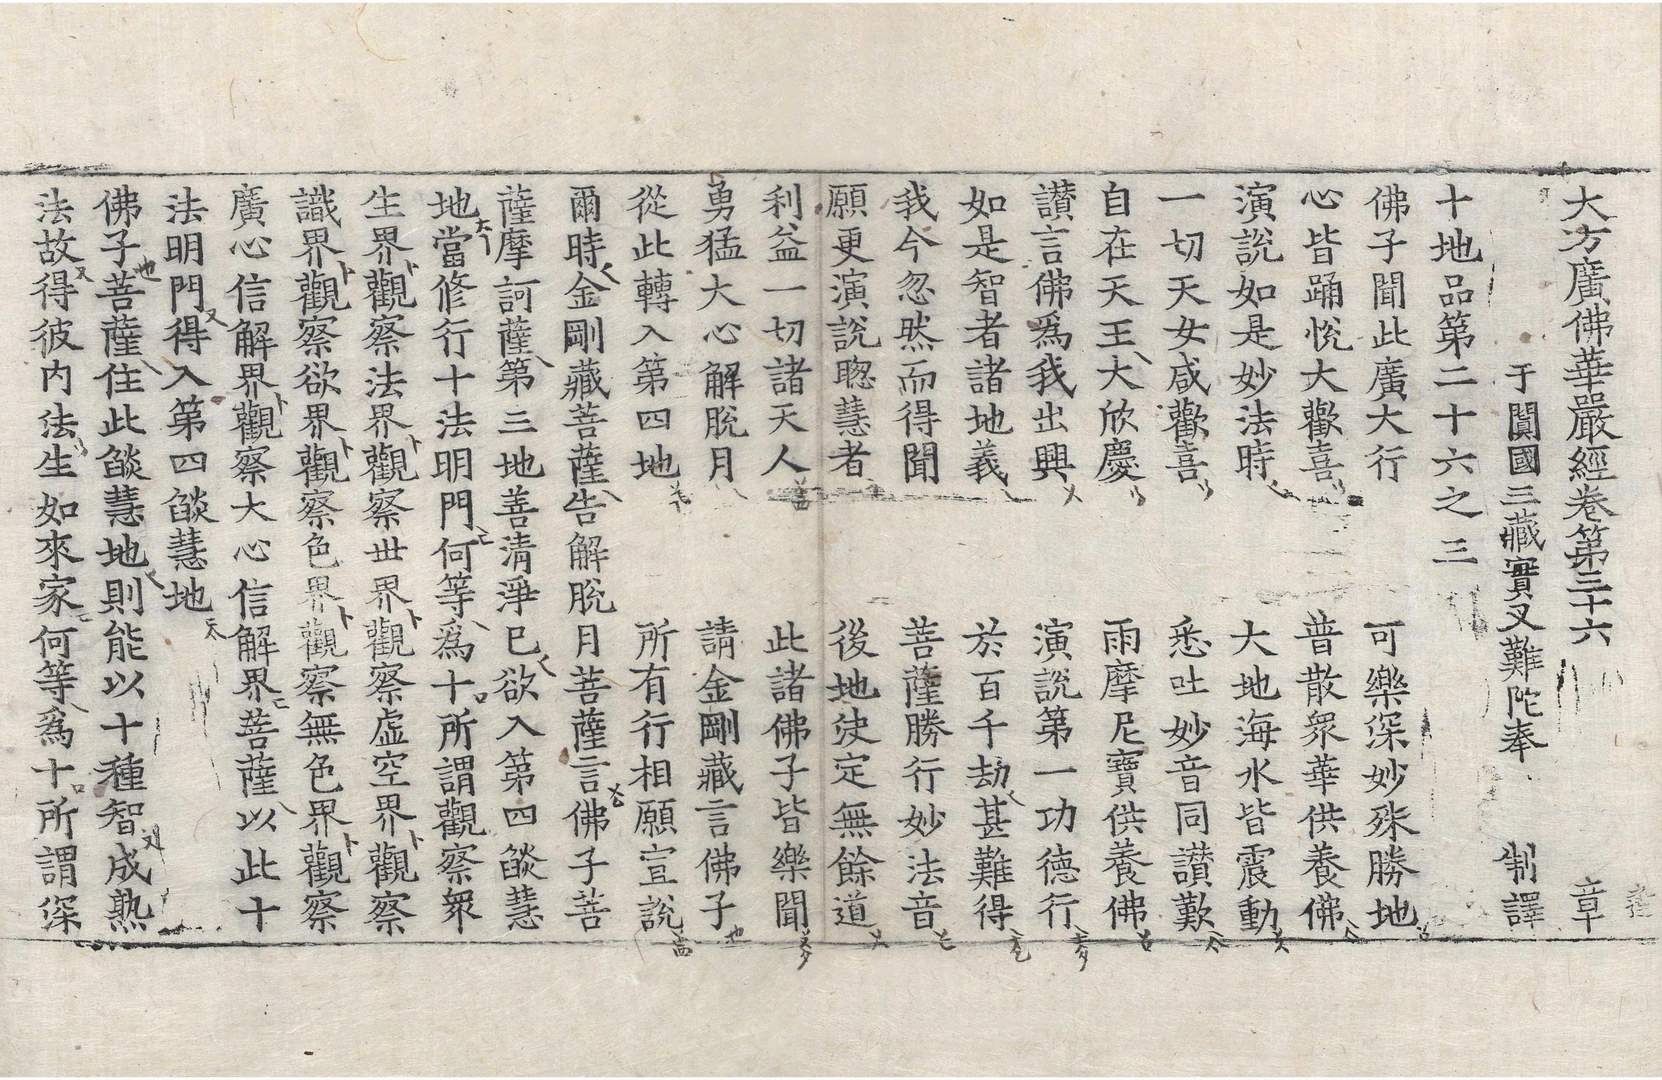 大方廣佛華嚴經卷第三十六 章
于闐國三藏實叉難陁奉 制譯
十地品第二十六之三
佛子聞此廣大行 可樂深妙殊勝地
心皆踊悅大歡喜 普散衆華供養佛
演說如是妙法時 大地海水皆震動
一切天女咸歡喜 悉吐妙音同讚歎
自在天王大欣慶 雨摩尼寶供養佛
讚言佛爲我出興 演說第一功德行
如是智者諸地義 於百千劫甚難得
我今忽然而得聞 菩薩勝行妙法音
願更演說聦慧者 後地決定無餘道
利益一切諸天人 此諸佛子皆樂聞
勇猛大心解脫月 請金剛藏言佛子
從此轉入第四地 所有行相願宣說
爾時金剛藏菩薩告解脫月菩薩言佛子菩
薩摩訶薩第三地善清淨已欲入第四燄慧
地當修行十法明門何等爲十所謂觀察衆
生界觀察法界觀察世界觀察虛空界觀察
識界觀察欲界觀察色界觀察無色界觀察
廣心信解界觀察大心信解界菩薩以此十
法明門得入第四燄慧地
佛子菩薩住此燄慧地則能以十種智成熟
法故得彼內法生如來家何等爲十所謂深